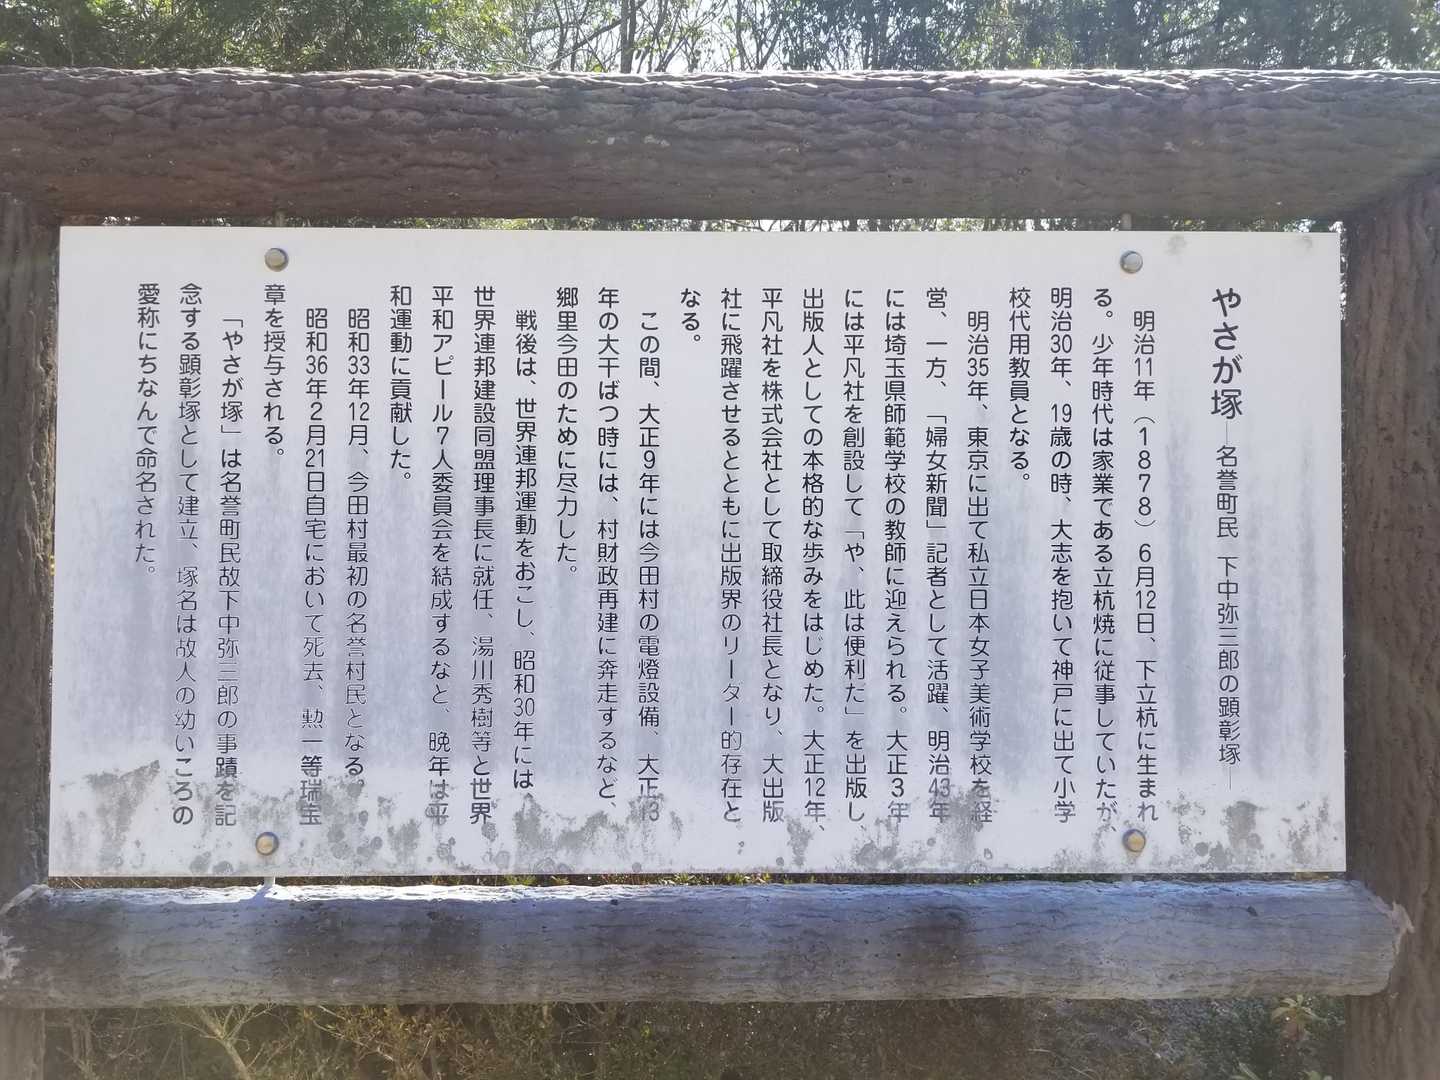 やさが塚―名誉町民 下中弥三郎の顕彰塚―
明治11年（1878）6月12日、下立杭に生まれ
る。少年時代は家業である立杭焼に従事していたが、
明治30年、19歳の時、大志を抱いて神戸に出て小学
校代用教員となる。
明治35年、東京に出て私立日本女子美術学校を経
営、一方、「婦女新聞」記者として活躍、明治43年
には埼玉県師範学校の教師に迎えられる。大正3年
には平凡社を創設して「や、此は便利だ」を出版し、
出版人としての本格的な歩みをはじめた。大正12年、
平凡社を株式会社として取締役社長となり、大出版
社に飛躍させるとともに出版界のリーダー的存在と
なる。
この間、大正9年には今田村の電燈設備、大正13
年の大干ばつ時には、村財政再建に奔走するなど、
郷里今田のために尽力した。
戦後は、世界連邦運動をおこし、昭和30年には
世界連邦建設同盟理事長に就任、湯川秀樹等と世界
平和アピール7人委員会を結成するなと、晩年は平
和運動に貢献した。
昭和33年12月、今田村最初の名誉村民となる。
昭和36年2月21日自宅において死去、勲一等瑞宝
章を授与される。
「やさが塚」は名誉町民故下中弥三郎の事蹟を記
念する顕彰塚として建立、塚名は故人の幼いころの
愛称にちなんで命名された。